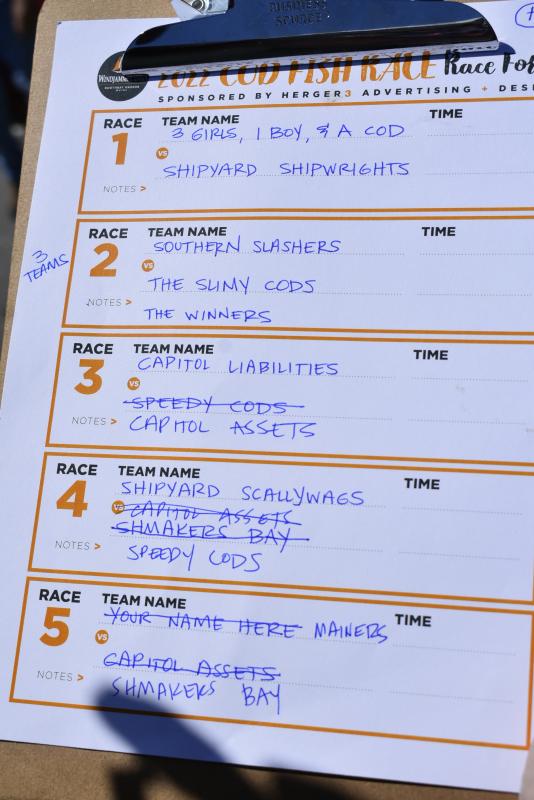 BUSINESS SOURCE
WINDJAMMER
2022 COD FISH RACE Race For
SPONSORED BY HERGER3 ADVERTISING + DESI
RACE 1 TEAM NAME TIME
3 GIRLS, 1 BOY, & A COD
VS
SHIPYARD SHIPWRIGHTS
NOTES >
3 TEAMS
RACE 2 TEAM NAME TIME
SOUTHERN SLASHERS
VS
THE SLIMY CODS
NOTES >
THE WINNERS
RACE 3 TEAM NAME TIME
CAPITOL LIABILITIES
VS
SPEEDY CODS
NOTES >
CAPITOL ASSETS
RACE 4 TEAM NAME TIME
SHIPYARD SCALLYWAGS
VS
CAPITOL ASSETS
SHMAKERS BAY
NOTES >
SPEEDY CODS
RACE 5 TEAM NAME TIME
YOUR NAME HERE MAINERS
VS
CAPITOL ASSETS
NOTES >
SHMAKERS BAY